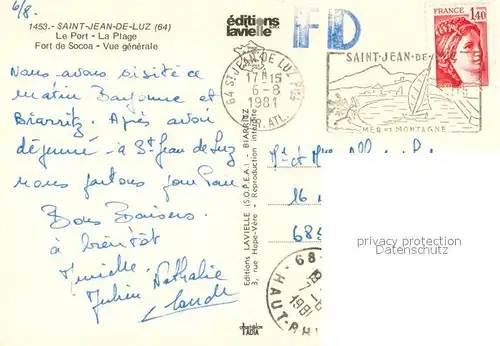 6/8.
1453.- SAINT-JEAN-DE-LUZ (64)
Le Port - La Plage
Fort de Socoa - Vue générale
éditions
lavielle
FD
64 ST JEAN DE LUZ PPAL
17H15
6-8
1981
ATL.
SAINT-JEAN-DE-
MER ET MONTAGNE
FRANCE
1,40
Nous avons visité ce
matin Bayonne et
Biarritz. Après avoir
déjeuné à St Jean de Luz
nous partons pour Pau
Bons Baisers
à bientôt
Murielle
Nathalie
Julien
Claude
Editions LAVIELLE (S.O.P.E.A.) - BIARRITZ
3, rue Hope-Vère - Reproduction interdite
Mr et Mme
16
68
privacy protection
Datenschutz
68-
HAUT-RHIN
198